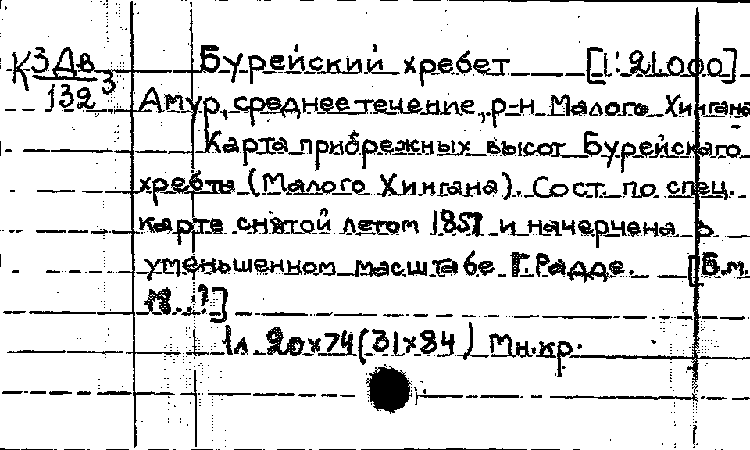 К 3Дв/132 3 Бурейский хребет [1:21.000]
Амур, среднее течение, р-н Малого Хингана
Карта прибрежных высот Бурейскаго
хребта (Малого Хингана). Сост. по спец.
карте снятой летом 1857 и начерчена в
уменьшенном масштабе Г. Радде. [Б.м.
18..?]
1л. 20х74 (31х84) Мн.кр.